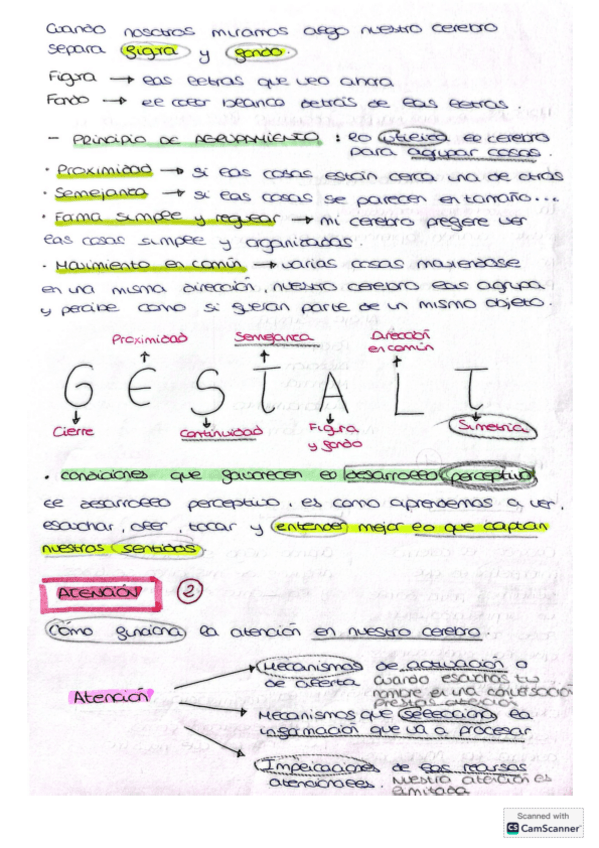 Cuando nosotros miramos algo nuestro cerebro
separa figura y fondo.
Figura → las letras que veo ahora
Fondo → el color blanco detrás de las letras.
- PRINCIPIO DE AGRUPAMIENTO : lo utiliza el cerebro
para agrupar cosas.
· Proximidad → si las cosas están cerca una de otras
· Semejanza → si las cosas se parecen en tamaño...
· Forma simple y regular → mi cerebro prefiere ver
las cosas simple y organizadas.
· Movimiento en común → varias cosas moviendose
en una misma dirección, nuestro cerebro las agrupa
y percibe como si fueran parte de un mismo objeto.
Proximidad Semejanza Dirección
en común
G E S T A L T
Cierre Continuidad Figura Simetría
y fondo
· condiciones que favorecen el desarrollo perceptivo
el desarrollo perceptivo, es como aprendemos a ver,
escuchar, oler, tocar y entender mejor lo que captan
nuestros sentidos.
ATENCIÓN 2
Cómo funciona la atención en nuestro cerebro.
Atención
Mecanismos de actuación o
de alerta cuando escuchas tu
nombre en una conversación
prestas atención
Mecanismos que selecciona la
información que va a procesar
Implicaciones de los recursos
atencionales. Nuestra atención es
limitada
Scanned with
CS CamScanner